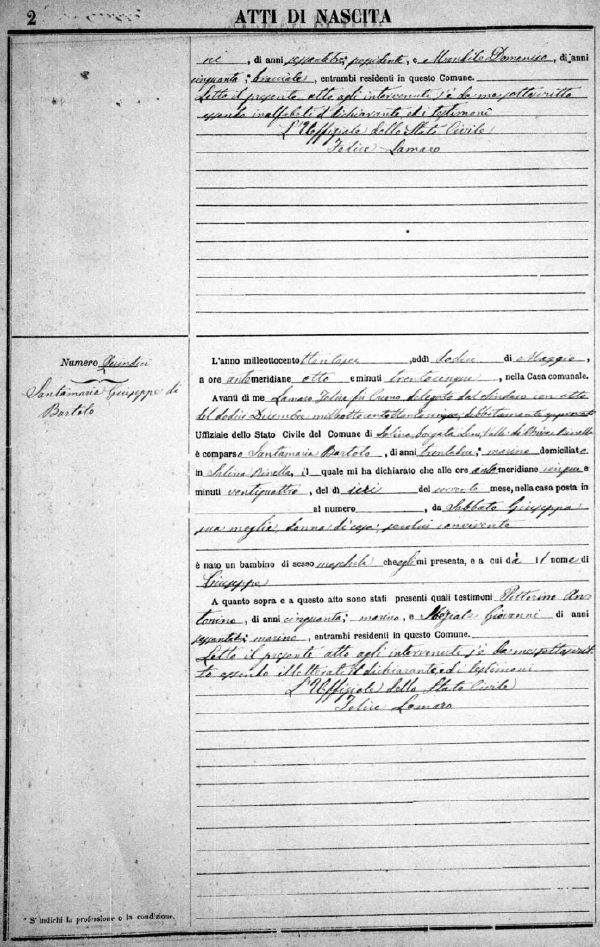 2
ATTI DI NASCITA
, di anni possidente, e Domenico, di anni
cinquanta, bracciale, entrambi residenti in questo Comune.
Letto il presente atto agli intervenuti, s'è da me sottoscritto
essendo inalfabeti il dichiarante, ed i testimoni
L'Uffiziale dello Stato Civile
Felice Lamaro
Numero Quindici
Santamaria Giuseppe di
Bartolo
L'anno milleottocento ottantasei, addì dodici di Maggio,
a ore antemeridiane otto e minuti trentacinque, nella Casa comunale.
Avanti di me Lamaro Felice fu delegato dal Sindaco con atto
del dodici Dicembre milleottocentottantacinque, debitamente approvato
Uffiziale dello Stato Civile del Comune di Salina,
è comparso Santamaria Bartolo, di anni trentadue, marino domiciliato
in Salina Rinella, il quale mi ha dichiarato che alle ore antemeridiane cinque e
minuti ventiquattro, del dì ieri del corrente mese, nella casa posta in
al numero , da Sabbato Giuseppa
sua moglie, donna di casa, seco lui convivente
è nato un bambino di sesso maschile che egli mi presenta, e a cui dà il nome di
Giuseppe
A quanto sopra e a questo atto sono stati presenti quali testimoni Antonino, di anni cinquanta, marino, e Giovanni di anni
marino, entrambi residenti in questo Comune.
Letto il presente atto agli intervenuti s'è da me sottoscritto
essendo illetterati il dichiarante, ed i testimoni
L'Uffiziale dello Stato Civile
Felice Lamaro
* S' indichi la professione o la condizione.